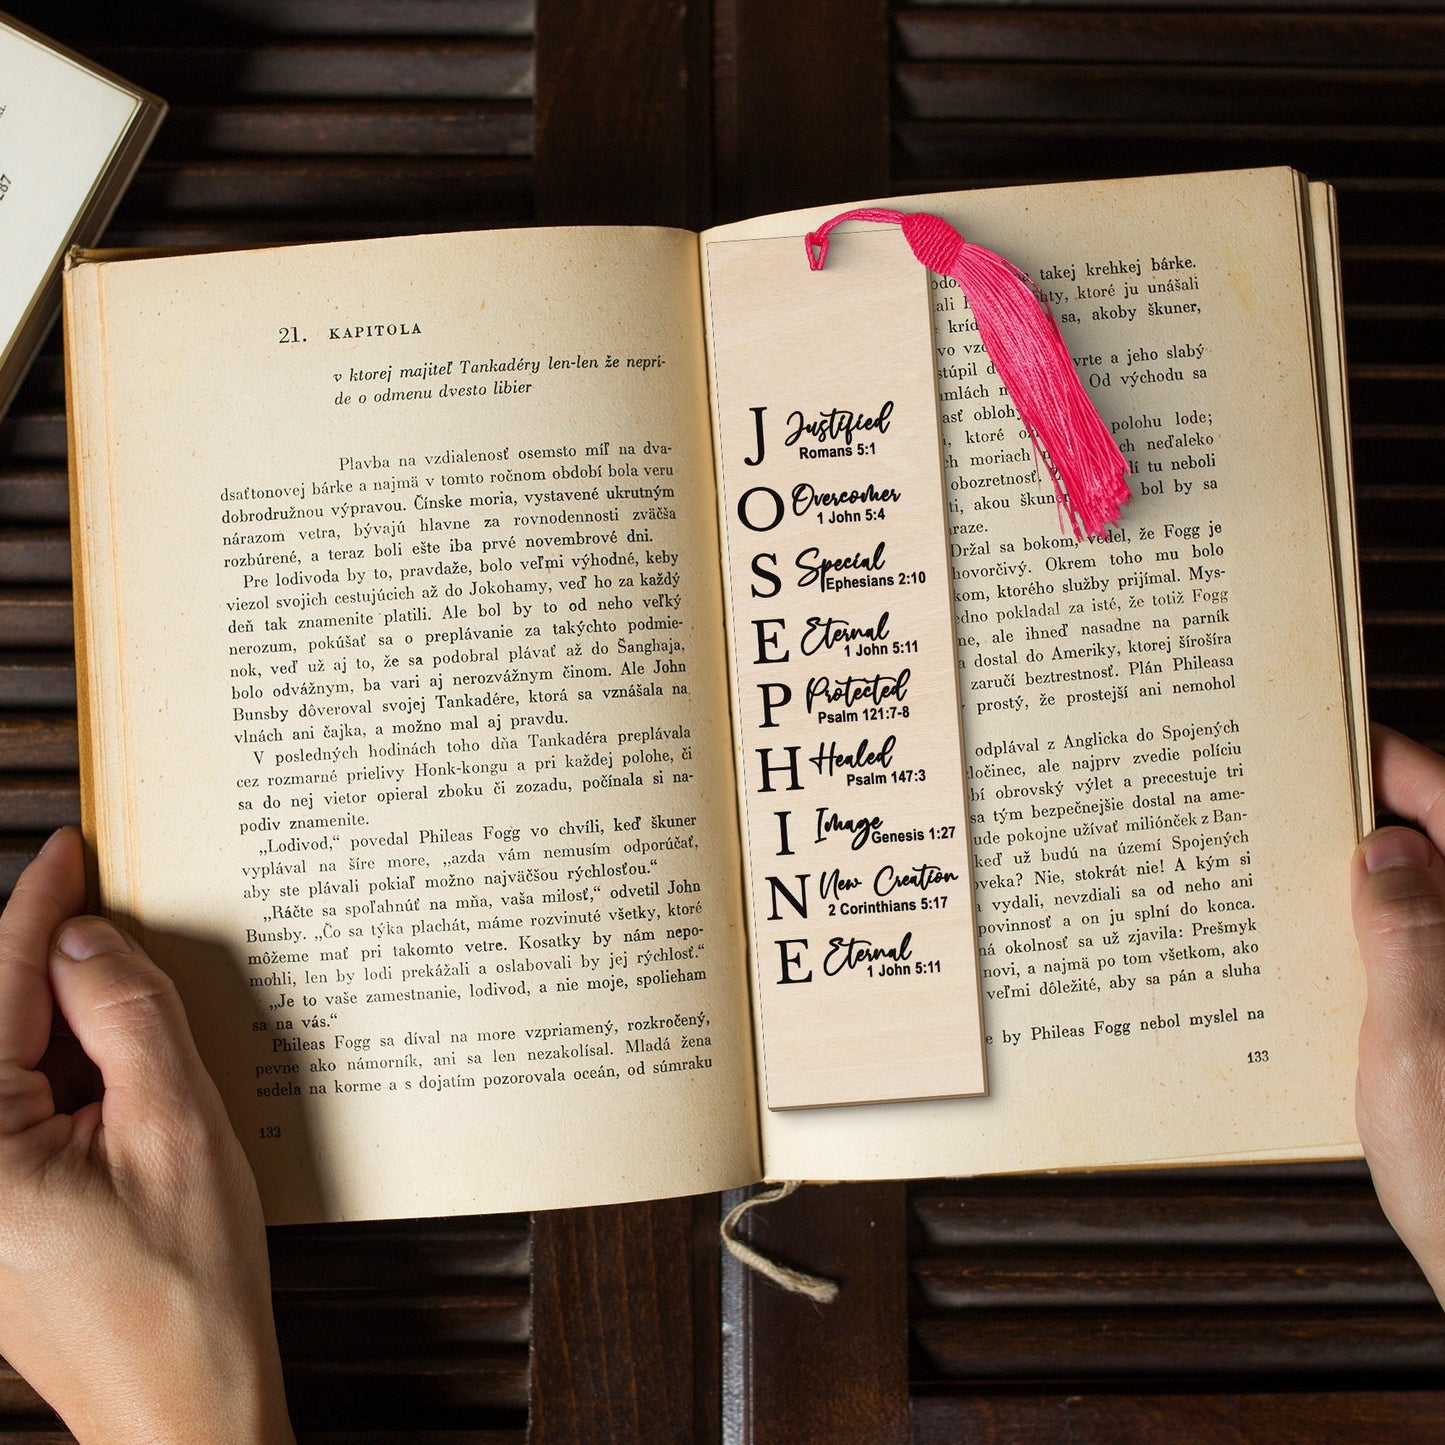 287
21. KAPITOLA
v ktorej majiteľ Tankadéry len-len že neprí-
de o odmenu dvesto libier
Plavba na vzdialenosť osemsto míľ na dva-
dsaťtonovej bárke a najmä v tomto ročnom období bola veru
dobrodružnou výpravou. Čínske moria, vystavené ukrutným
nárazom vetra, bývajú hlavne za rovnodennosti zväčša
rozbúrené, a teraz boli ešte iba prvé novembrové dni.
Pre lodivoda by to, pravdaže, bolo veľmi výhodné, keby
viezol svojich cestujúcich až do Jokohamy, veď ho za každý
deň tak znamenite platili. Ale bol by to od neho veľký
nerozum, pokúšať sa o preplávanie za takýchto podmie-
nok, veď už aj to, že sa podobral plávať až do Šanghaja,
bolo odvážnym, ba vari aj nerozvážnym činom. Ale John
Bunsby dôveroval svojej Tankadére, ktorá sa vznášala na
vlnách ani čajka, a možno mal aj pravdu.
V posledných hodinách toho dňa Tankadéra preplávala
cez rozmarné prielivy Honk-kongu a pri každej polohe, či
sa do nej vietor opieral zboku či zozadu, počínala si na-
podiv znamenite.
„Lodivod,“ povedal Phileas Fogg vo chvíli, keď škuner
vyplával na šíre more, „azda vám nemusím odporúčať,
aby ste plávali pokiaľ možno najväčšou rýchlosťou.“
„Ráčte sa spoľahnúť na mňa, vaša milosť,“ odvetil John
Bunsby. „Čo sa týka plachát, máme rozvinuté všetky, ktoré
môžeme mať pri takomto vetre. Kosatky by nám nepo-
mohli, len by lodi prekážali a oslabovali by jej rýchlosť.“
„Je to vaše zamestnanie, lodivod, a nie moje, spolieham
sa na vás.“
Phileas Fogg sa díval na more vzpriamený, rozkročený,
pevne ako námorník, ani sa len nezakolísal. Mladá žena
sedela na korme a s dojatím pozorovala oceán, od súmraku
132
J Justified
Romans 5:1
O Overcomer
1 John 5:4
S Special
Ephesians 2:10
E Eternal
1 John 5:11
P Protected
Psalm 121:7-8
H Healed
Psalm 147:3
I Image
Genesis 1:27
N New Creation
2 Corinthians 5:17
E Eternal
1 John 5:11
takej krehkej bárke.
ktoré ju unášali
sa, akoby škuner,
a jeho slabý
Od východu sa
polohu lode;
neďaleko
obozretnosť. tu neboli
akou bol by sa
Držal sa bokom, vedel, že Fogg je
hovorčivý. Okrem toho mu bolo
ktorého služby prijímal. Mys-
pokladal za isté, že totiž Fogg
ale ihneď nasadne na parník
dostal do Ameriky, ktorej šírošíra
zaručí beztrestnosť. Plán Phileasa
prostý, že prostejší ani nemohol
odplával z Anglicka do Spojených
ale najprv zvedie políciu
obrovský výlet a precestuje tri
sa tým bezpečnejšie dostal na ame-
pokojne užívať miliónček z Ban-
keď už budú na území Spojených
Nie, stokrát nie! A kým si
vydali, nevzdiali sa od neho ani
povinnosť a on ju splní do konca.
okolnosť sa už zjavila: Prešmyk
a najmä po tom všetkom, ako
veľmi dôležité, aby sa pán a sluha
by Phileas Fogg nebol myslel na
133